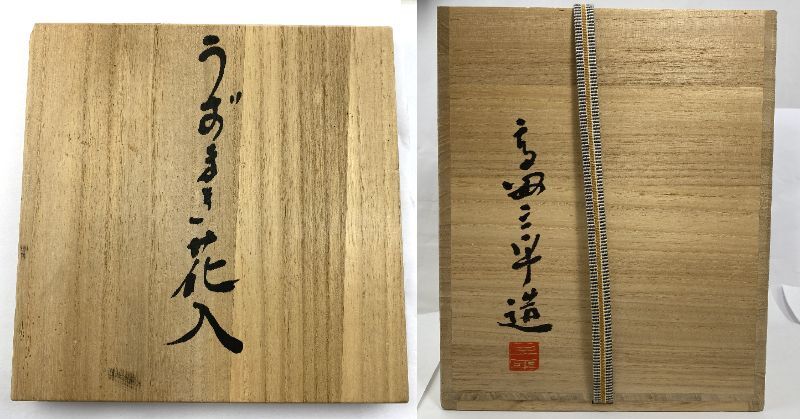 うずまき花入
高田三平造
三平